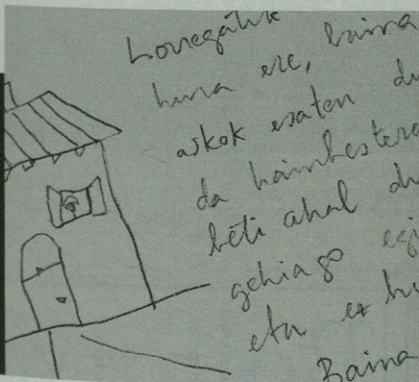 hura ere, baina
askok esaten du
da hainbestera
beti ahal du
gehiago egi
eta ez hu
Baina